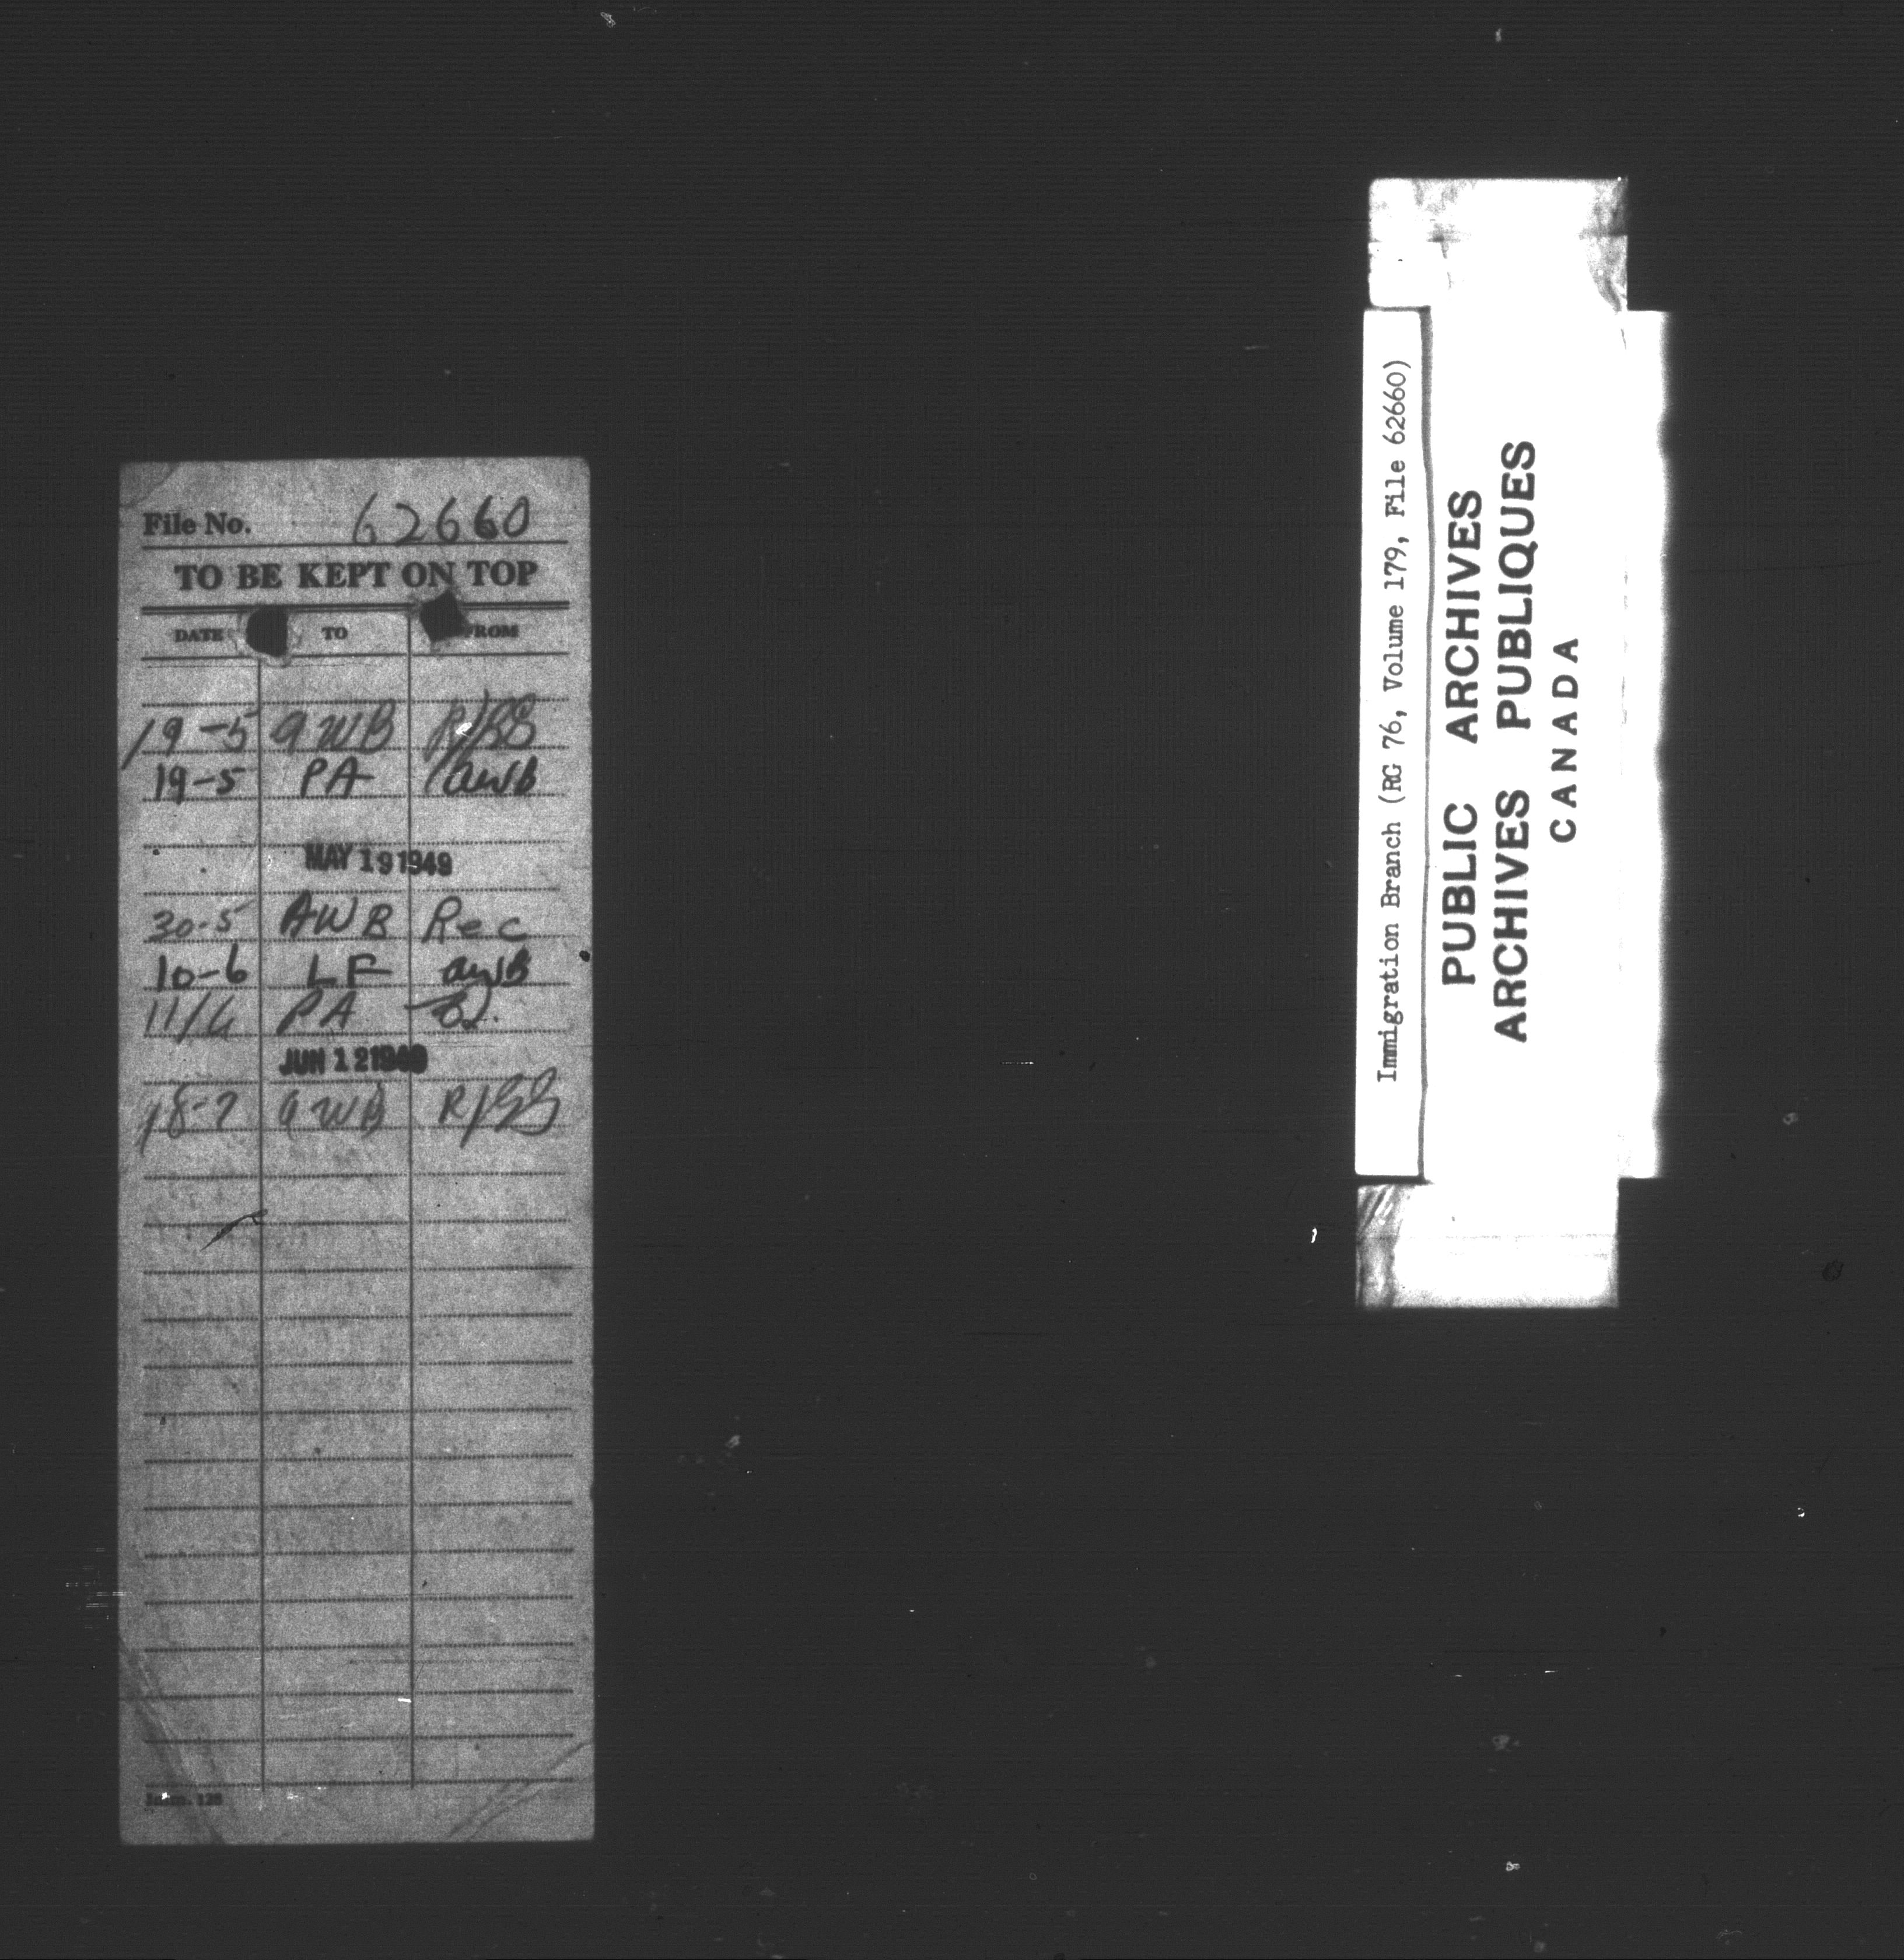 File No. 62660
TO BE KEPT ON TOP
DATE TO FROM
19-5 AWB
19-5 PA AWB
MAY 19 1949
30-5 AWB Rec
10-6 LF AWB
11/6 PA
JUN 12 1949
18-7 AWB
Imm. 128
Immigration Branch (RG 76, Volume 179, File 62660)
PUBLIC ARCHIVES
ARCHIVES PUBLIQUES
CANADA